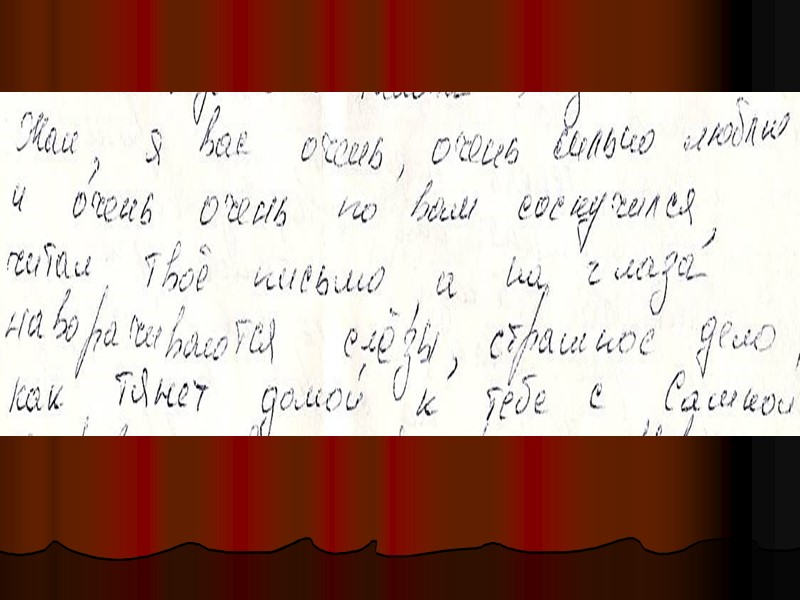 Жан, я вас очень, очень сильно люблю
и очень очень по вам соскучился,
читал твоё письмо, а на глаза
наворачиваются слёзы, страшное дело,
как тянет домой к тебе с Сашкой